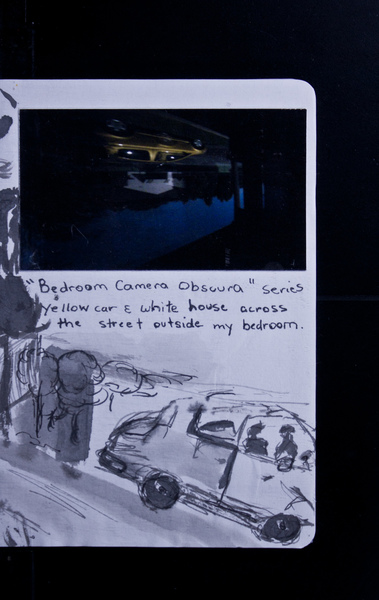 "Bedroom Camera Obscura" series
Yellow car & white house across
the street outside my bedroom.